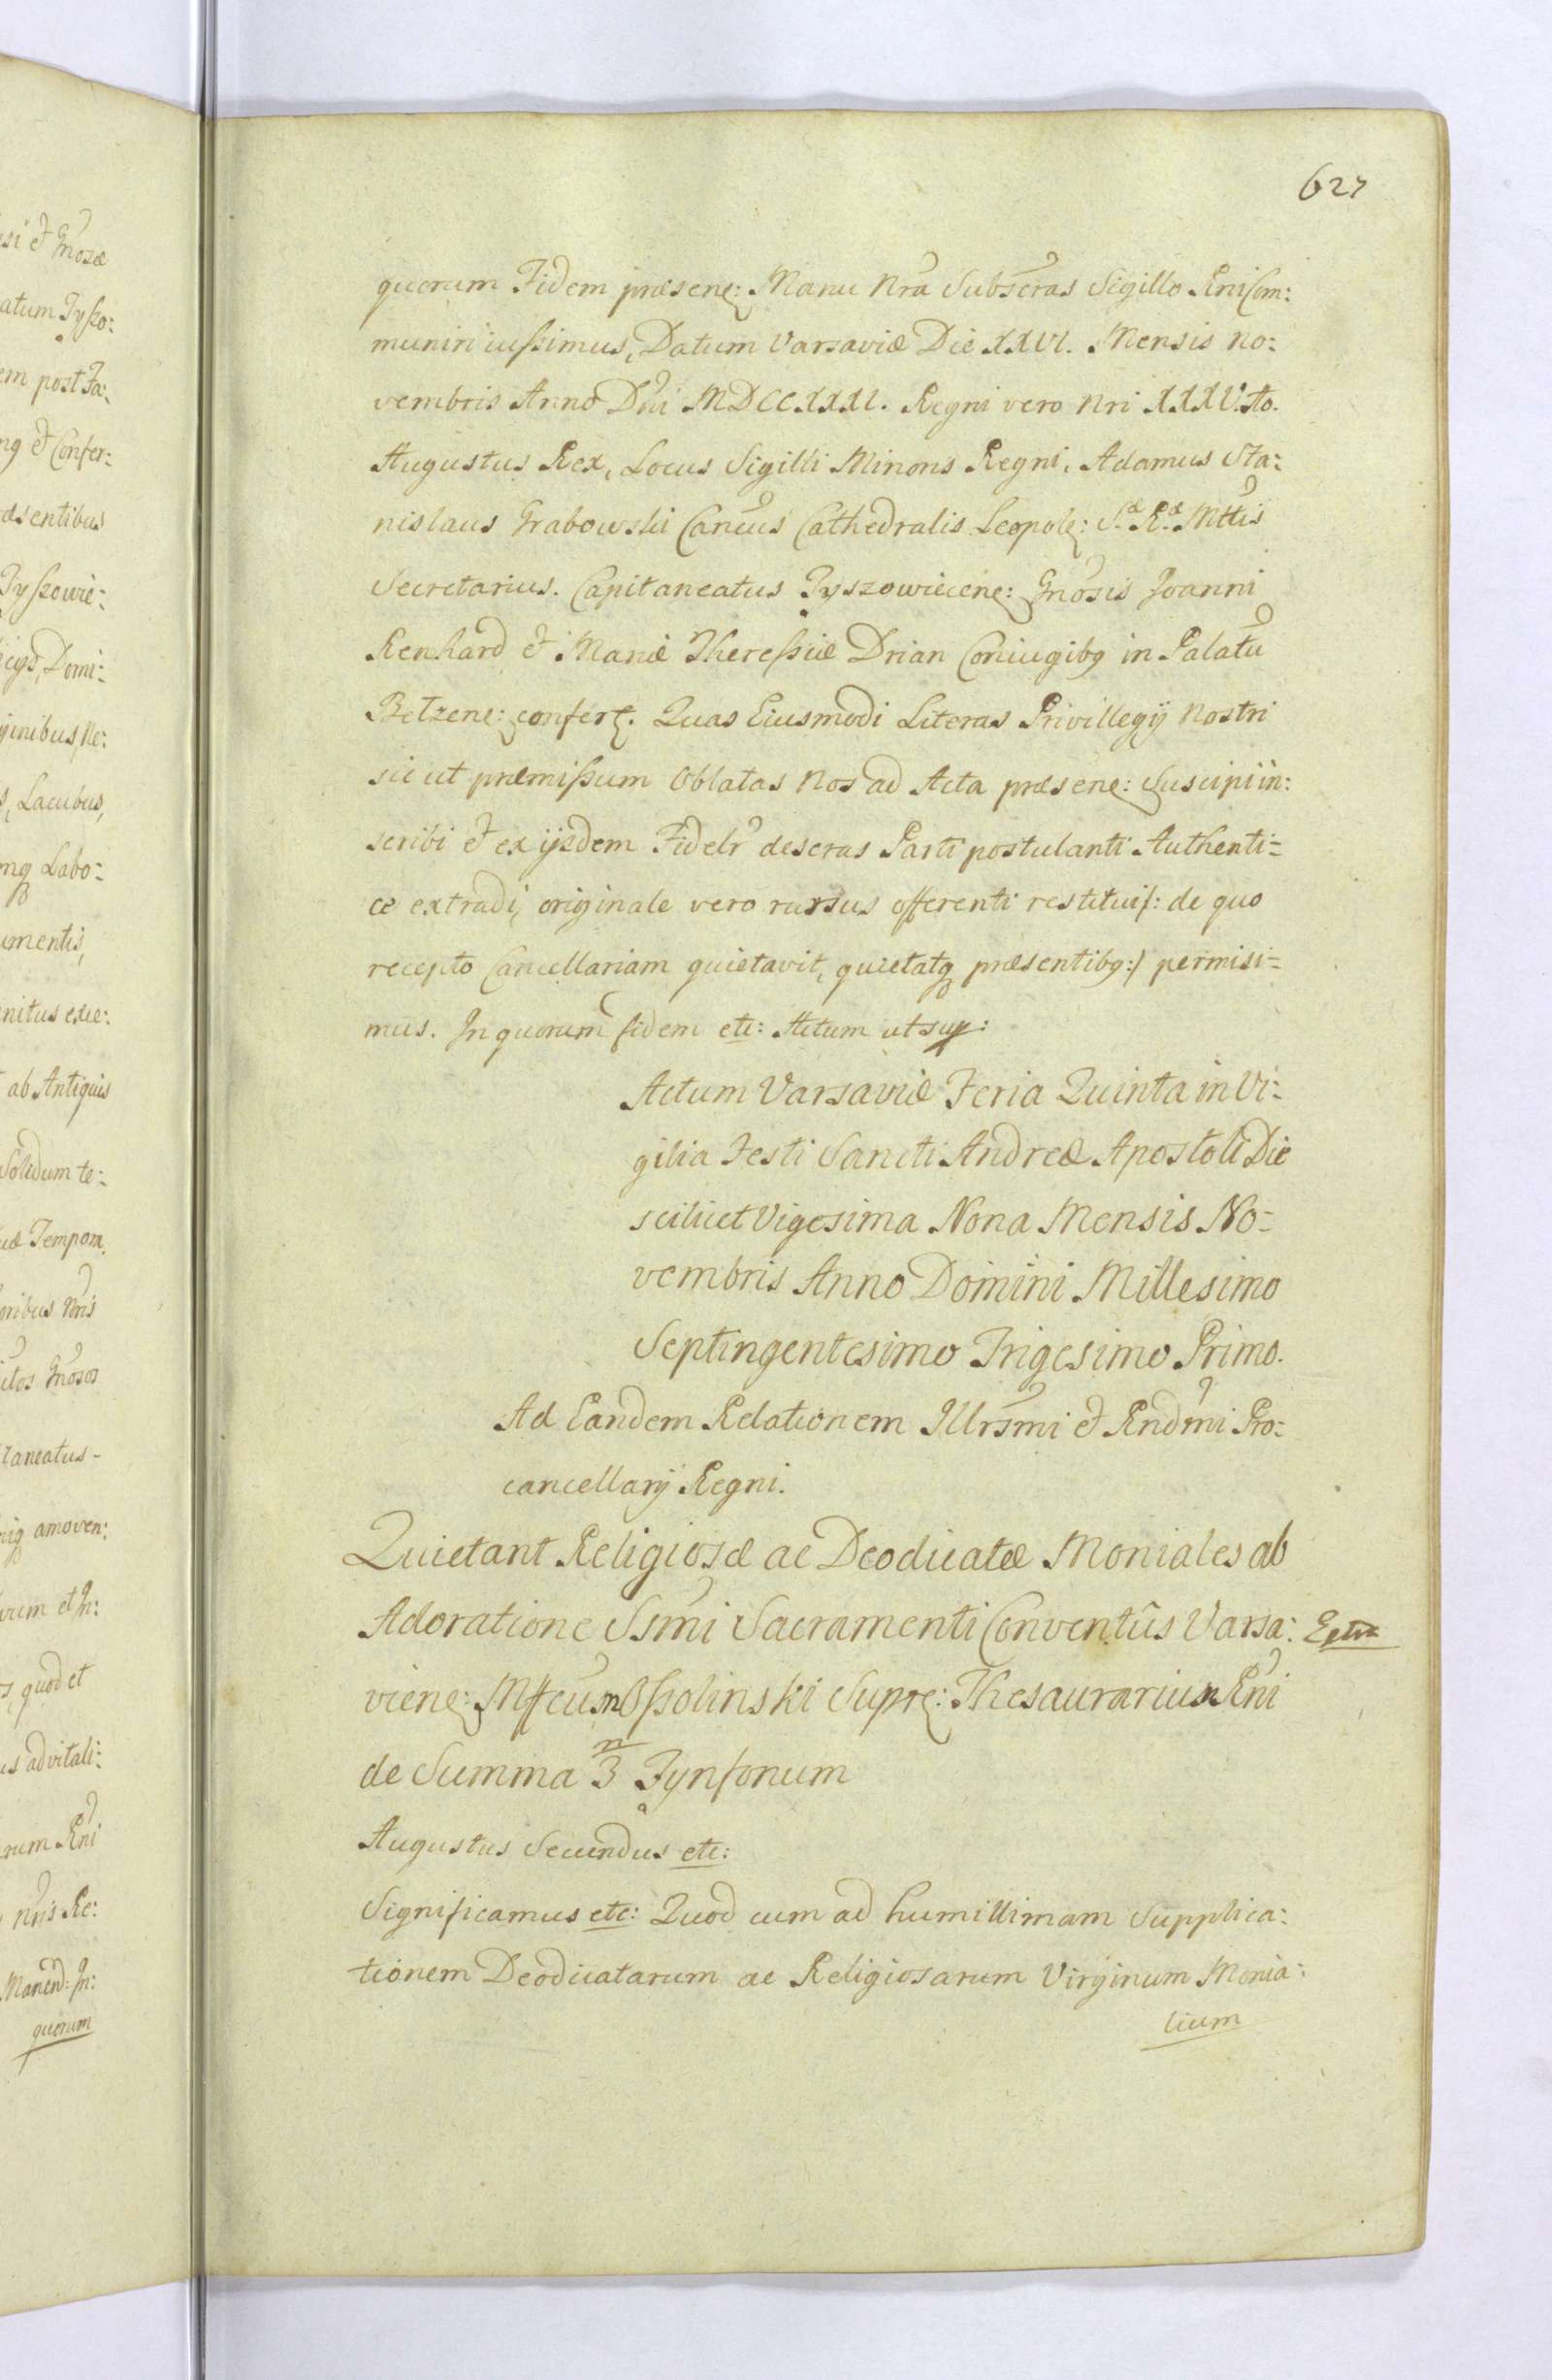 esi et Gnosæ
atum Tyszo:
em post Fa:
ng et Confer:
æsentibus
Tyszowie:
icijs, Domi:
ginibus, Ne:
s, Lacubus,
mq Labo:
umentis,
nitus exce:
ab Antiquis
Solidum te:
uæ Tempora
oribus Nris
itos Gnosos
taneatus-
riq amoven:
rum et In:
s, quod et
us ad vitali:
rum Rni
Nris Re:
Manend: In:
quorum
627
quorum Fidem præsene: Manu Nra Subscras Sigillo Rni Com:
muniri iussimus, Datum Varsaviæ Die XXVI. Mensis No:
vembris Anno Dni MDCCXXXI. Regni vero Nri XXXV.to.
Augustus Rex, Locus Sigilli Minoris Regni, Adamus Sta:
nislaus Grabowski Cancus Cathedralis Leopole: S.æ R.æ Mttis
Secretarius. Capitaneatus Tyszowiecene: Gnosis Joanni
Renhard et Mariæ Theressiæ Drian Coniugibq in Palatu
Betzene: confert. Quas Eiusmodi Literas Privillegij Nostri
sic ut præmissum Oblatas Nos ad Acta præsene: Suscipi in:
scribi et ex ijsdem Fidelr descras Parti postulanti Authenti=
ce extradi, originale vero rursus offerenti restitui/: de quo
recepto Cancellariam quietavit, quietatq præsentibq:/ permisi=
mus. In quorum fidem etc: Actum ut sup:
Actum Varsaviæ Feria Quinta in Vi:
gilia Festi Sancti Andreæ Apostoli Die
scilicet Vigesima Nona Mensis No=
vembris Anno Domini Millesimo
Septingentesimo Trigesimo Primo.
Ad Eandem Relationem Illrsmi et Rndmi Pro:
cancellarij Regni.
Quietant Religiosæ ac Deodicatæ Moniales ab
Adoratione Ssmi Sacramenti Conventûs Varsa:
viene: Mfcum Ossolinski Supre: Thesaurarium Rni
de Summa 3 m Tynfonum
Augustus Secundus etc:
Significamus etc: Quod cum ad humillimam Supplica:
tionem Deodicatarum ac Religiosarum Virginum Monia:
lium